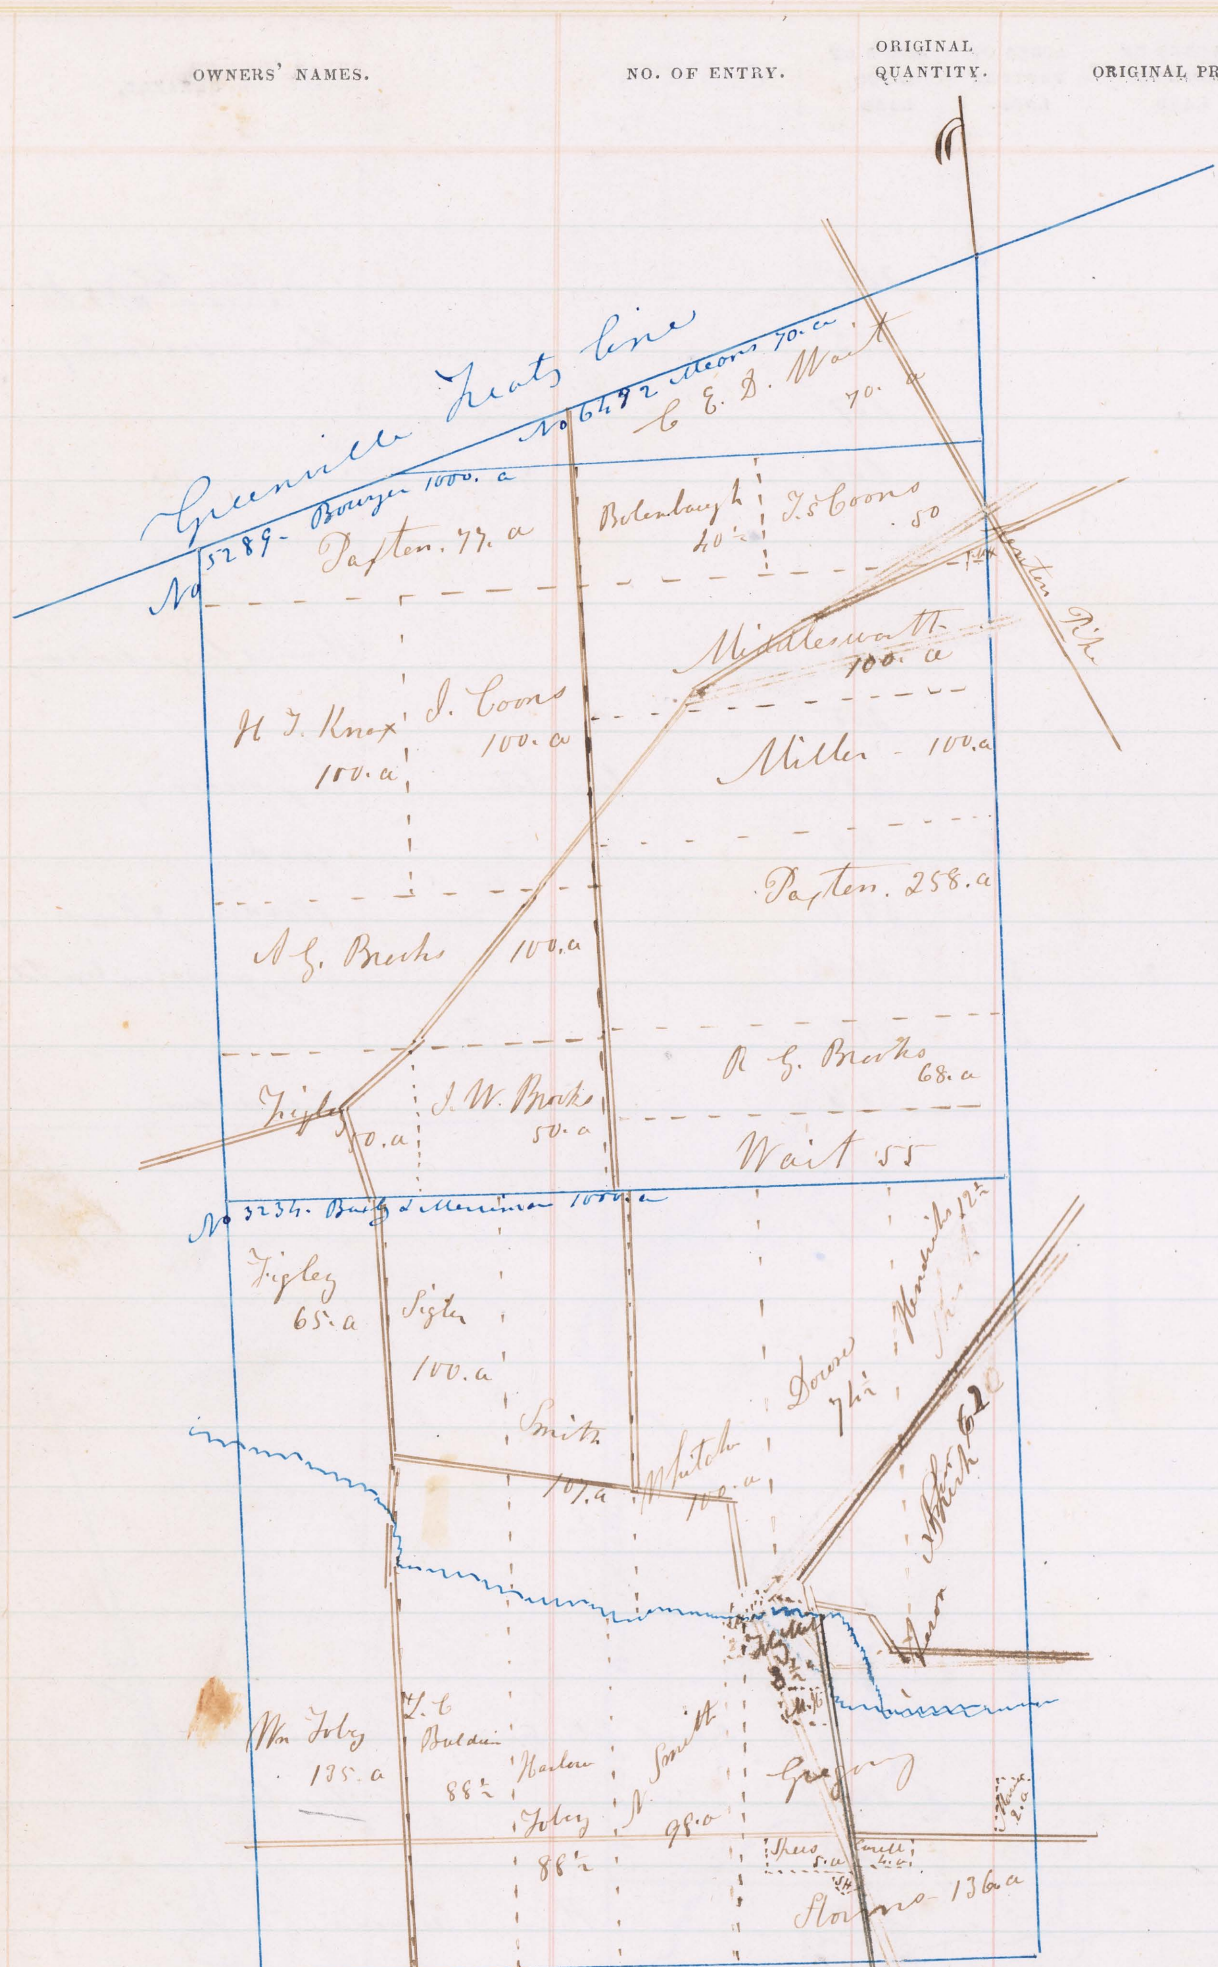 OWNERS' NAMES.
NO. OF ENTRY.
ORIGINAL
QUANTITY.
ORIGINAL PR
Greenville Treaty line
No 6492 Means 70. a
C. E. D. Wait
70. a
No 5289- Bowyer 1000. a
Paxten. 77. a
Bolenbaugh
40 ½
J. S Coons
50
Pike
Middlesworth
100. a
H T. Knox
100. a
J. Coons
100. a
Miller - 100. a
Paxten. 258. a
A G. Brooks 100. a
R G. Brooks
68. a
Figley
50. a
J. W. Brooks
50. a
Wait 55
No 3234. & Merriman 1000. a
Figley
65. a
Sigler
100. a
Hendricks 12 ½
Downe
74 ½
Smith
101. a
Whitch
100. a
62
Aaron
8 ½
Wm Toby
135. a
Baldwin
88 ½
Harlow
Toby
88 ½
N. Smith
98. a
Gregory
2. a
Spees
5. a
4. a
SH
136. a